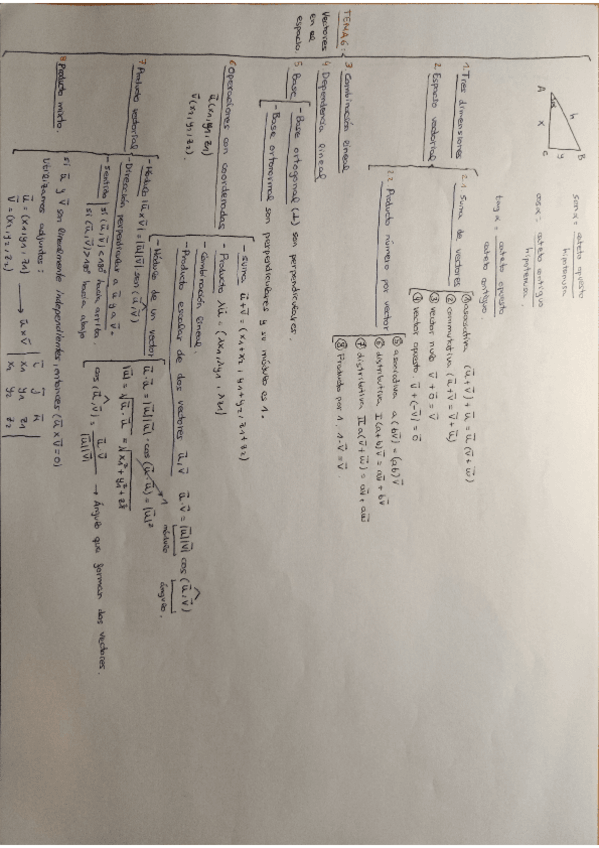 A B C h x y
sen α = cateto opuesto / hipotenusa
cos α = cateto contiguo / hipotenusa.
tang α = cateto opuesto / cateto contiguo.
TEMA 6:
Vectores
en el
espacio.
1. Tres dimensiones
2. Espacio vectorial
2.1 Suma de vectores
① asociativa (ū+v̄)+ū = ū(v̄+w̄)
② conmutativa (ū+v̄ = v̄+ū)
③ vector nulo v̄+ō = v̄
④ vector opuesto v̄+(-v̄) = ō
2.2 Producto número por vector
⑤ asociativa a(bv̄) = (ab)v̄
⑥ distributiva I (a+b)v̄ = av̄ + bv̄
⑦ distributiva II a(v̄+w̄) = av̄ + aw̄
⑧ Producto por 1. 1·v̄ = v̄
3 Combinación lineal
4 Dependencia lineal
5 Base
- Base ortogonal (⊥) son perpendiculares.
- Base ortonormal son perpendiculares y su módulo es 1.
6 Operaciones con coordenadas
ū(x1,y1,z1)
v̄(x2,y2,z2).
- suma ū+v̄ = (x1+x2, y1+y2, z1+z2)
- Producto λū = (λx1, λy1, λz1)
- Combinación lineal.
- Producto escalar de dos vectores ū,v̄ ū·v̄ = |ū||v̄| cos(ū,v̄)
módulo ángulo.
- Módulo de un vector ū·ū = |ū||ū|·cos(ū·ū) = |ū|²
1
|ū| = √ū·ū = √x1²+y1²+z1²
cos(ū,v̄) = ū·v̄ / |ū||v̄| → Ángulo que forman dos vectores.
7 Producto vectorial
- Módulo |ū x v̄| = |ū||v̄| sen(ū,v̄)
- Dirección perpendicular a ū y a v̄
- Sentido si (ū,v̄) < 180° hacia arriba.
si (ū,v̄) > 180° hacia abajo
si ū y v̄ son linealmente independientes, entonces (ū x v̄ = 0)
Utilizamos adjuntos:
ū = (x1,y1,z1)
v̄ = (x2,y2,z2)
→ ū x v̄
x1 y1 z1
x2 y2 z2
8 Producto mixto.